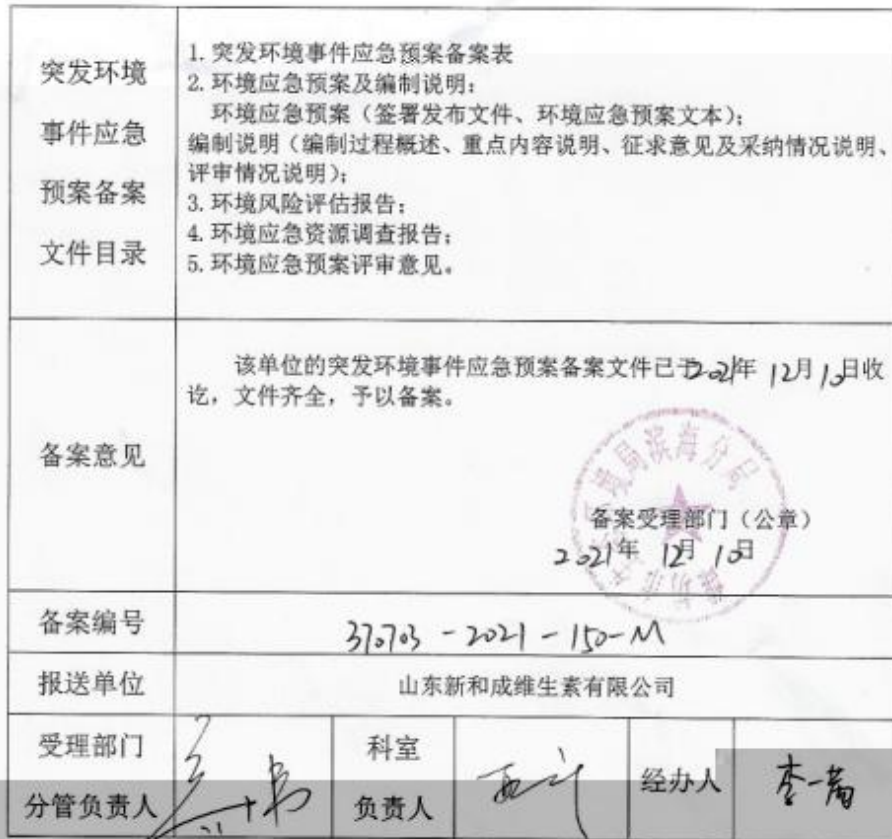 突发环境
事件应急
预案备案
文件目录
1. 突发环境事件应急预案备案表
2. 环境应急预案及编制说明：
环境应急预案（签署发布文件、环境应急预案文本）；
编制说明（编制过程概述、重点内容说明、征求意见及采纳情况说明、
评审情况说明）；
3. 环境风险评估报告；
4. 环境应急资源调查报告；
5. 环境应急预案评审意见。
备案意见
该单位的突发环境事件应急预案备案文件已于2021年 12月 10日收
讫，文件齐全，予以备案。
环境局滨海分局
备案受理部门（公章）
2021年 12月 10日
备案编号
370703-2021-150-M
报送单位
山东新和成维生素有限公司
受理部门
分管负责人
科室
负责人
经办人
李一